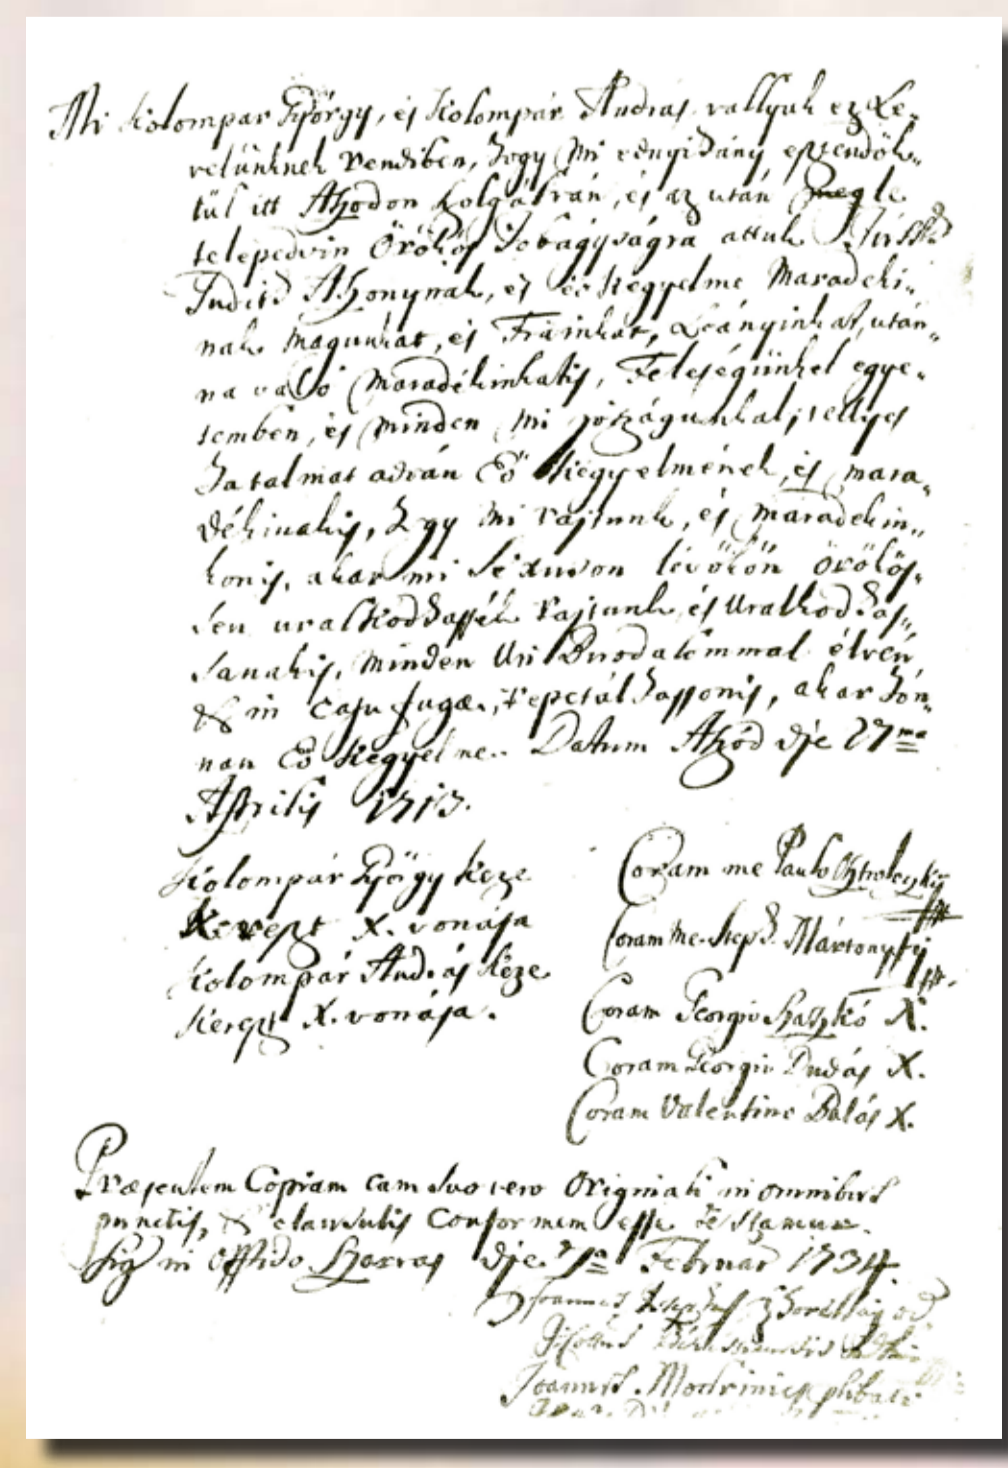 Mi Kolompar György, és Kolompár András vallyuk ez Le„
velünknek rendiben, hogy Mi ednyihány esztendök„
tül itt Aszodon szolgálván, és az után meg le
telepedvin Örökös Jobágyságra attuk
Judith Aszonynak, és eö Kegyelme Maradeki„
nak magunkat, és Fiainkat, Leányinkat, után„
na való Maradékinkatis, Feleségünkel egye„
temben, és minden Mi jószágunkal, tellyes
hatalmat adván Eö Kegyelmének, és mara„
dékinakis, hogy Mi rajtunk, és maradekin„
konis, akar mi Sexuson lévökön örökös„
sen uralkodhassék rajtunk, és Uralkodhas„
sanakis, minden Uri Birodalommal élvén
& in casu fugæ, repetálhassonis, akar hon„
nan Eö Kegyelme. Datum Aszód die 27ma
Aprilis 1713.
Kolompár György Keze
Kereszt X. vonája
Kolompár András Keze
Kereszt X. vonája.
Coram me Paulo
Coram me Steph. Mártonffy
Coram Georgio Haszkó X.
Coram Georgio Dudás X.
Coram Valentino Balás X.
Præsentem Copiam cum suo vero Originali in omnibus
punctis, & clausulis Conformem esse testamur.
Sig in Oppido Szarvas die Februar 1734.
Joannes
Joannes